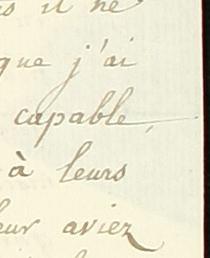 s il ne
que j'ai
capable,
à leurs
eur aviez